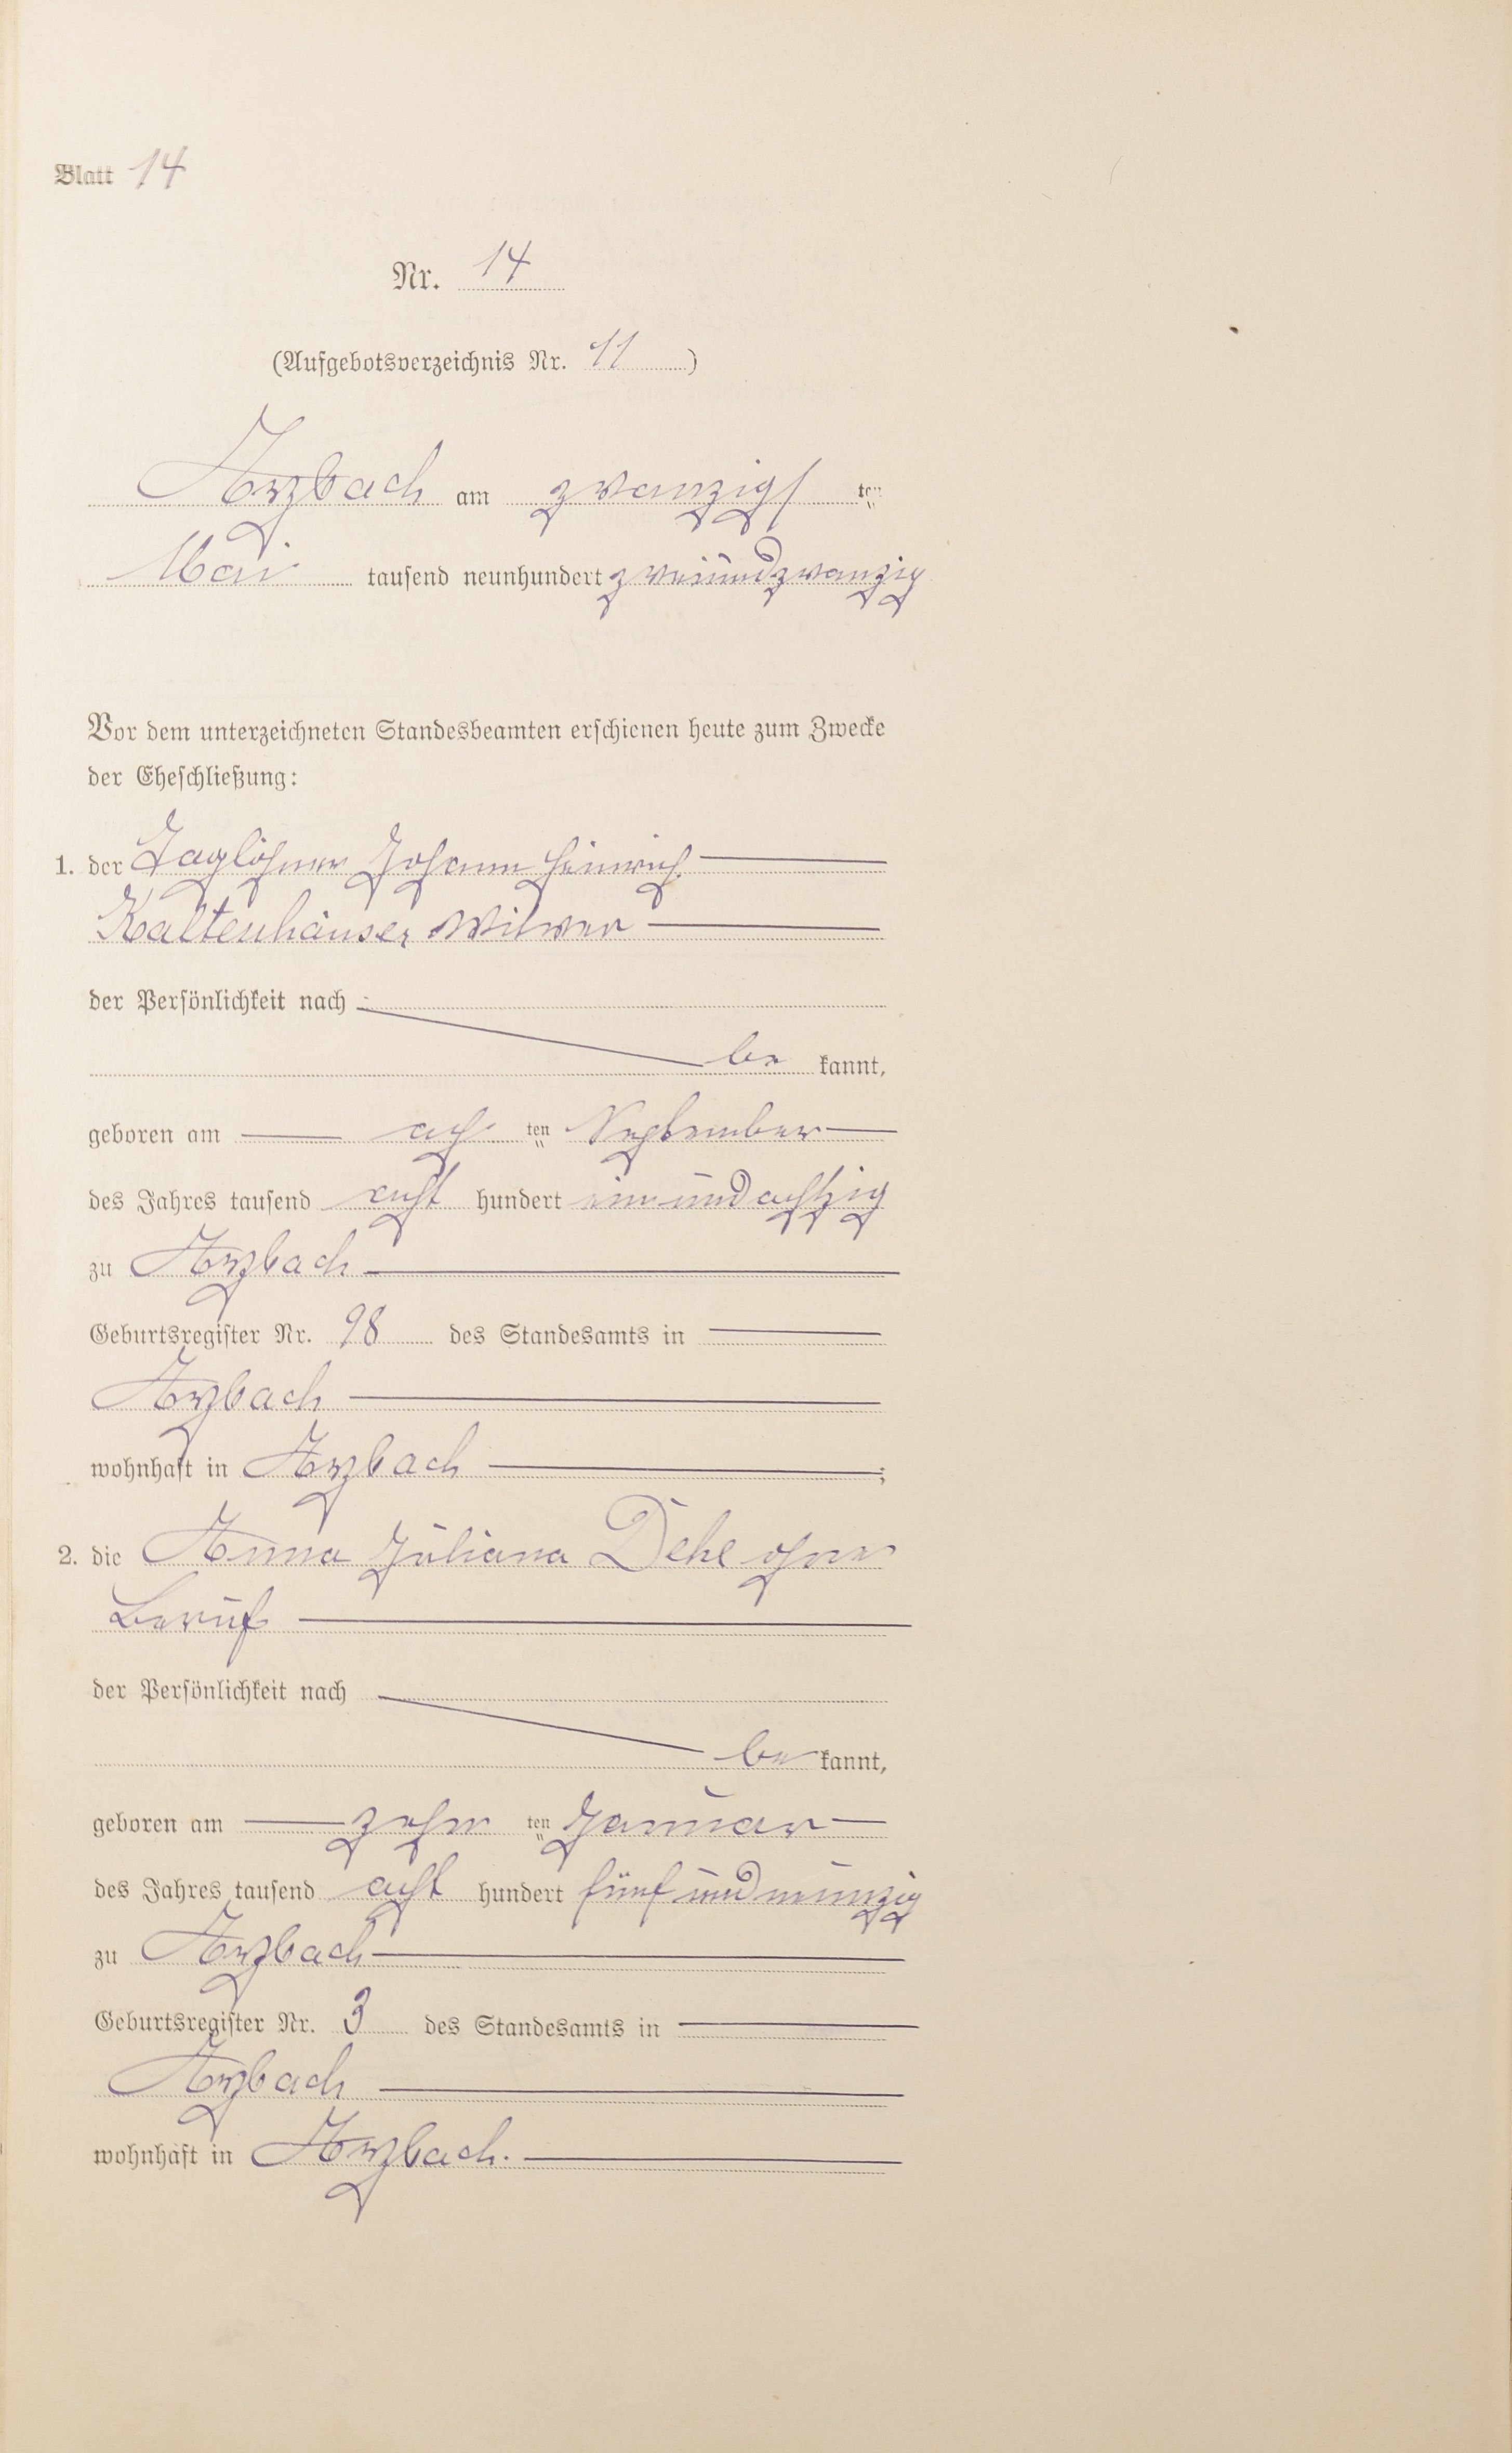 Blatt 14
Nr. 14
(Aufgebotsverzeichnis Nr. 11)
Arzbach am zwanzigsten
Mai tausend neunhundert zweiundzwanzig
Vor dem unterzeichneten Standesbeamten erschienen heute zum Zwecke
der Eheschließung:
1. der Taglöhner Johann Heinrich
Kaltenhäuser Witwer
der Persönlichkeit nach
be kannt,
geboren am achten September
des Jahres tausend acht hundert einundachtzig
zu Arzbach
Geburtsregister Nr. 98 des Standesamts in
Arzbach
wohnhaft in Arzbach;
2. die Anna Juliana Dehe ohne
Beruf
der Persönlichkeit nach
be kannt,
geboren am zehn ten Januar
des Jahres tausend acht hundert fünfundneunzig
zu Arzbach
Geburtsregister Nr. 3 des Standesamts in
Arzbach
wohnhaft in Arzbach.